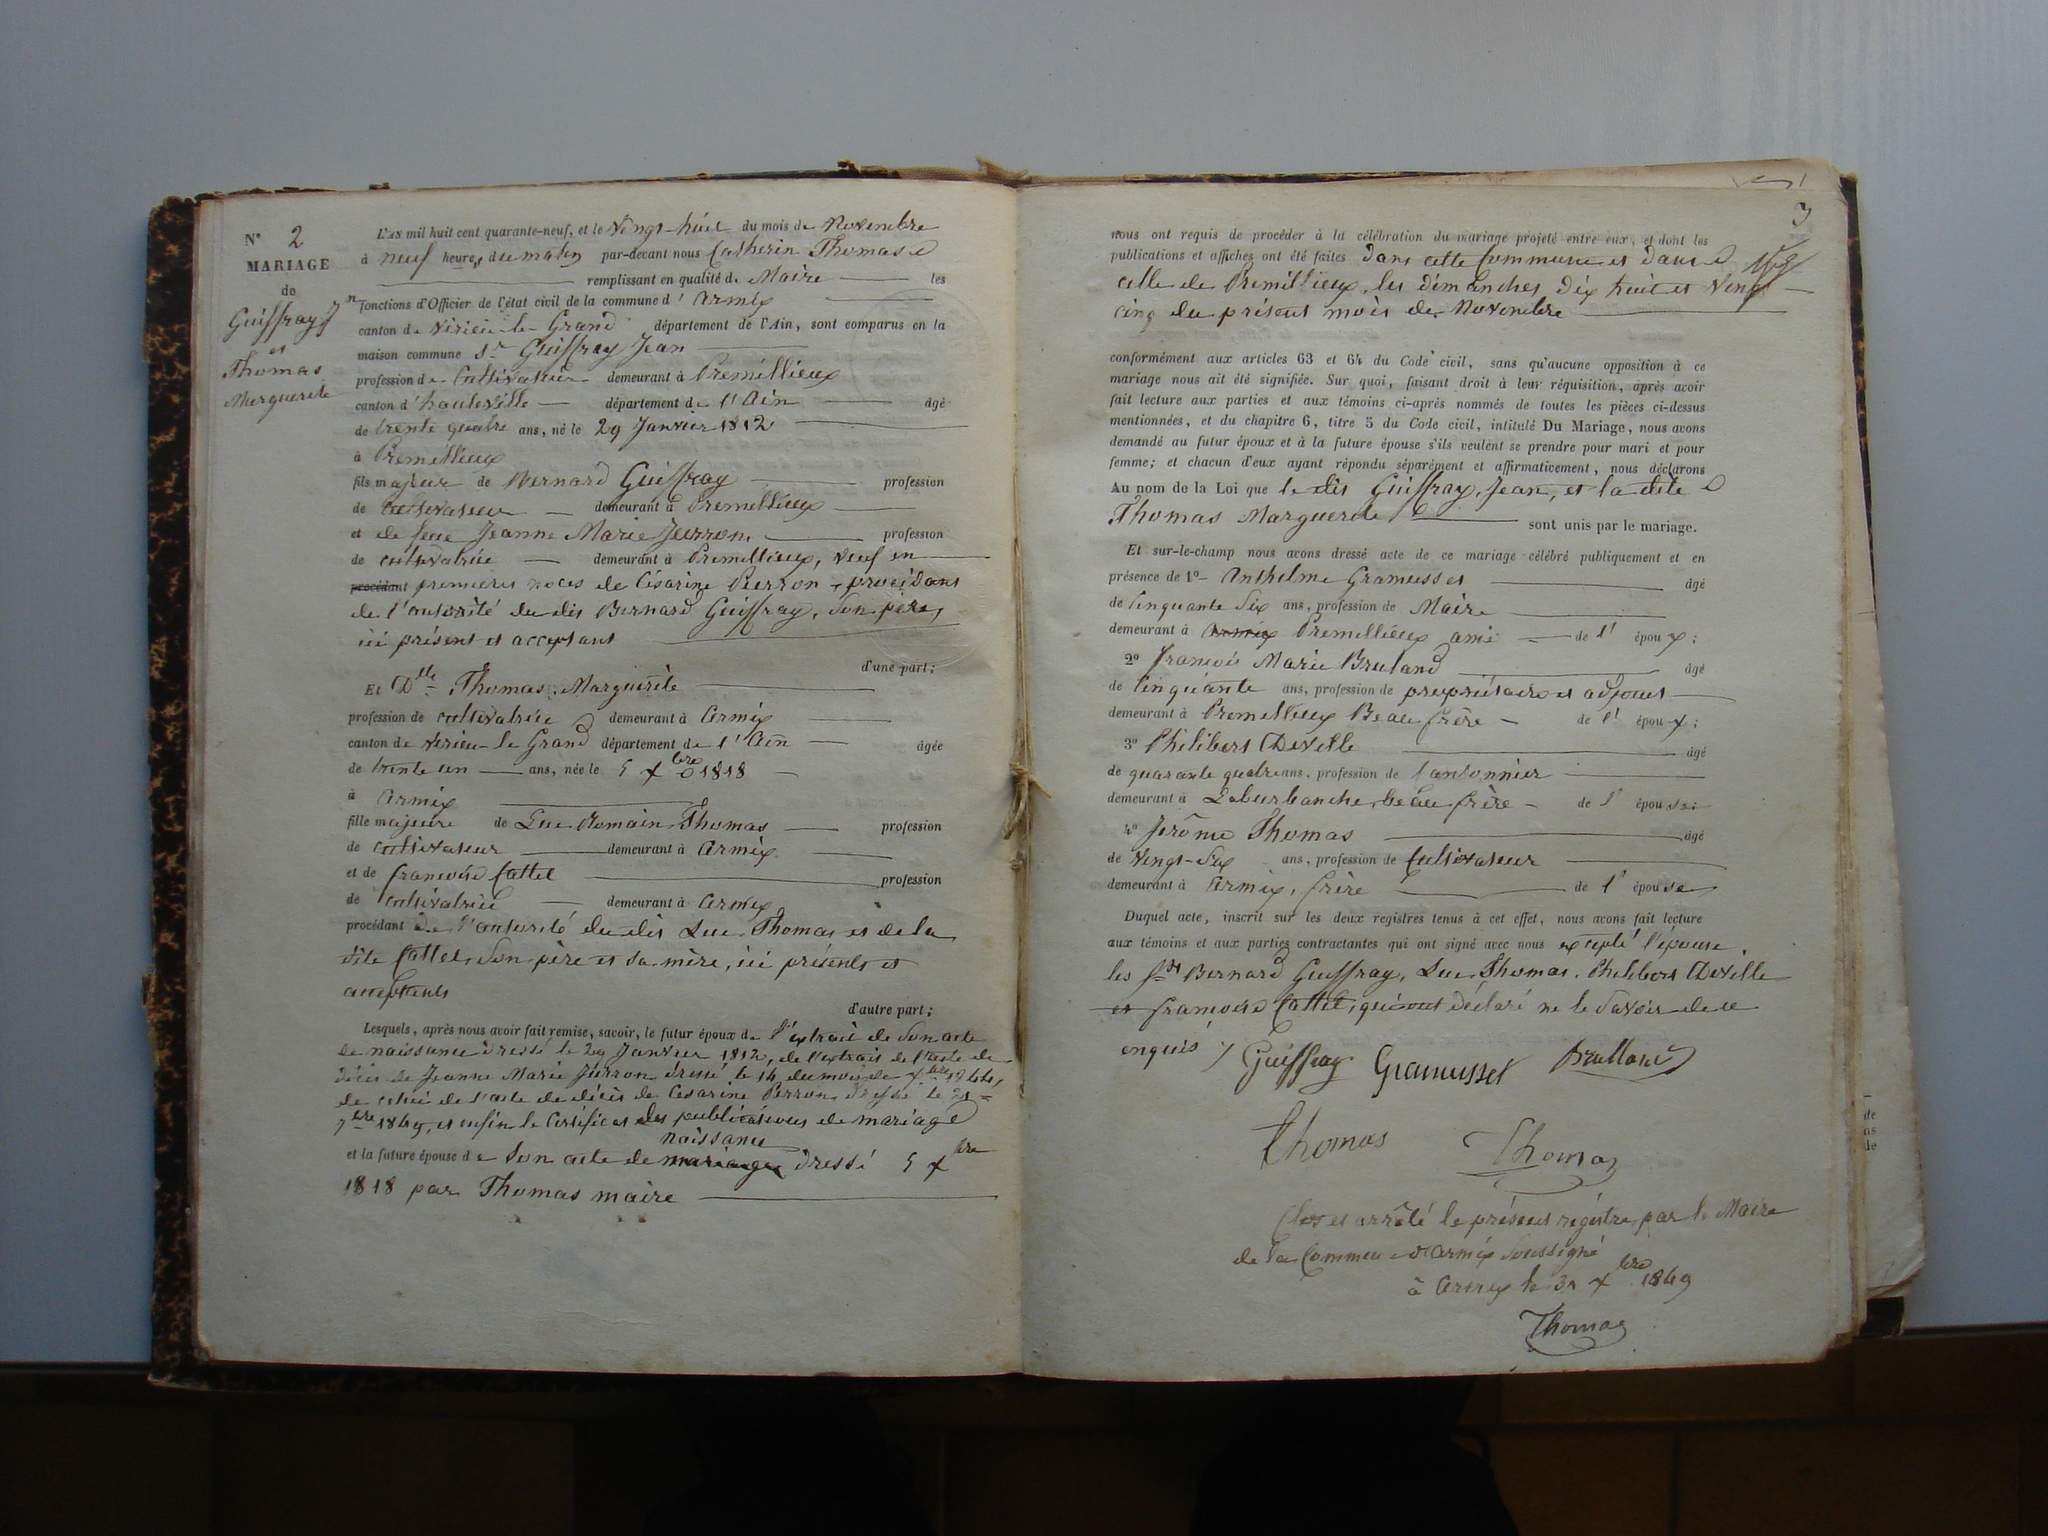 N° 2
MARIAGE
de
Guiffray Jn
et
Thomas
Marguerite
L'an mil huit cent quarante-neuf, et le Vingt-huit du mois de Novembre
à neuf heures du matin par-devant nous Catherin Thomas
remplissant en qualité de Maire les
fonctions d'Officier de l'état civil de la commune d'Armix
canton de Virieu-le-Grand département de l'Ain, sont comparus en la
maison commune Sr Guiffray Jean
profession de Cultivateur demeurant à Premillieux
canton d'hauteville département de l'Ain âgé
de trente quatre ans, né le 29 Janvier 1812
à Premillieux
fils majeur de Bernard Guiffray profession
de cultivateur demeurant à Premillieux
et de feue Jeanne Marie Jurron profession
de cultivatrice demeurant à Premillieux, Veuf en
procédant premières noces de Césarine Perron, procédant
de l'autorité du dit Bernard Guiffray, son père,
ici présent et acceptant
d'une part;
Et Dlle Thomas Marguerite
profession de cultivatrice demeurant à Armix
canton de Virieu-le-Grand département de l'Ain âgée
de trente un ans, née le 5 Xbre 1818
à Armix
fille majeure de Luc Romain Thomas profession
de cultivateur demeurant à Armix
et de françoise Cattet profession
de cultivatrice demeurant à Armix
procédant de l'autorité du dit Luc Thomas et de la
dite Cattet, son père et sa mère, ici présents et
acceptants
d'autre part;
Lesquels, après nous avoir fait remise, savoir, le futur époux de l'extrait de son acte
de naissance dressé le 29 Janvier 1812, de l'extrait de l'acte de
décès de Jeanne Marie Jurron dressé le 14 du mois de Xbre 1844,
de celui de l'acte de décès de Césarine Perron dressé le 21
7bre 1849, et enfin le Certificat des publications de mariage
naissance
et la future épouse de son acte de mariage dressé 5 Xbre
1818 par Thomas maire
3
nous ont requis de procéder à la célébration du mariage projeté entre eux, et dont les
publications et affiches ont été faites dans cette Commune et dans
celle de Premillieux, les dimanches dix huit et Vingt
cinq du présent mois de Novembre
conformément aux articles 63 et 64 du Code civil, sans qu'aucune opposition à ce
mariage nous ait été signifiée. Sur quoi, faisant droit à leur réquisition, après avoir
fait lecture aux parties et aux témoins ci-après nommés de toutes les pièces ci-dessus
mentionnées, et du chapitre 6, titre 5 du Code civil, intitulé Du Mariage, nous avons
demandé au futur époux et à la future épouse s'ils veulent se prendre pour mari et pour
femme; et chacun d'eux ayant répondu séparément et affirmativement, nous déclarons
Au nom de la Loi que le dit Guiffray Jean, et la dite
Thomas Marguerite sont unis par le mariage.
Et sur-le-champ nous avons dressé acte de ce mariage célébré publiquement et en
présence de 1° Anthelme Gramusset âgé
de Cinquante Six ans, profession de Maire
demeurant à Armix Premillieux ami de l'époux;
2° françois Marie Bruland âgé
de Cinquante ans, profession de propriétaire et adjoint
demeurant à Premillieux Beau frère de l'époux;
3° Philibert Deville âgé
de quarante quatre ans, profession de Cantonnier
demeurant à Laburbanche beau frère de l'épouse;
4° Jérôme Thomas âgé
de Vingt-Six ans, profession de Cultivateur
demeurant à Armix, frère de l'épouse
Duquel acte, inscrit sur les deux registres tenus à cet effet, nous avons fait lecture
aux témoins et aux parties contractantes qui ont signé avec nous excepté l'épouse,
les Srs Bernard Guiffray, Luc Thomas, Philibert Deville
et françoise Cattet, qui ont déclaré ne le savoir de ce
enquis
Guiffray Gramusset Brulland
Thomas Thomas
Clos et arrêté le présent régistre par le Maire
de la Commune d'Armix Soussigné
à Armix le 31 Xbre 1849
Thomas